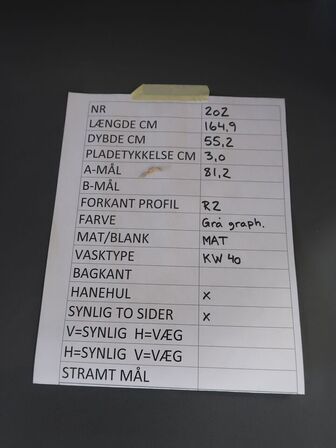 NR 202
LÆNGDE CM 164,9
DYBDE CM 55,2
PLADETYKKELSE CM 3,0
A-MÅL 81,2
B-MÅL
FORKANT PROFIL R2
FARVE Grå graph.
MAT/BLANK MAT
VASKTYPE KW 40
BAGKANT
HANEHUL x
SYNLIG TO SIDER x
V=SYNLIG H=VÆG
H=SYNLIG V=VÆG
STRAMT MÅL